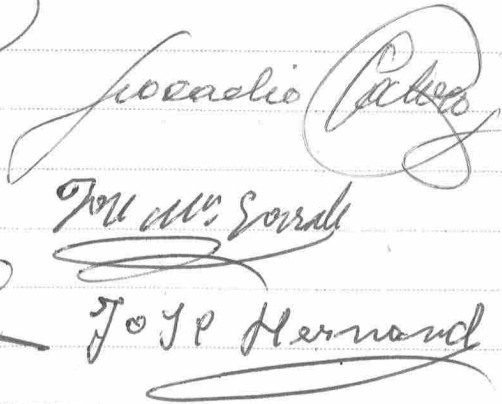 Leocadio Calvo
José Mª Gonzale
José Hernand